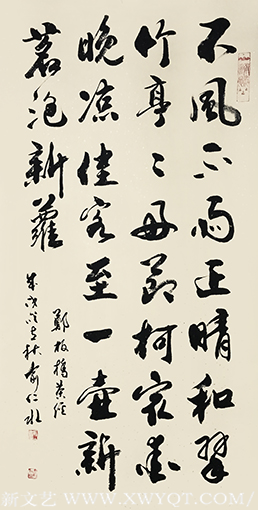 不風不雨正晴和翠
竹亭々好節柯最愛
晚涼佳客至一壺新
茗泡新蘿
鄭板橋茶詩
戊戌立秋俞仁水
新文艺 WWW.XWYQT.COM